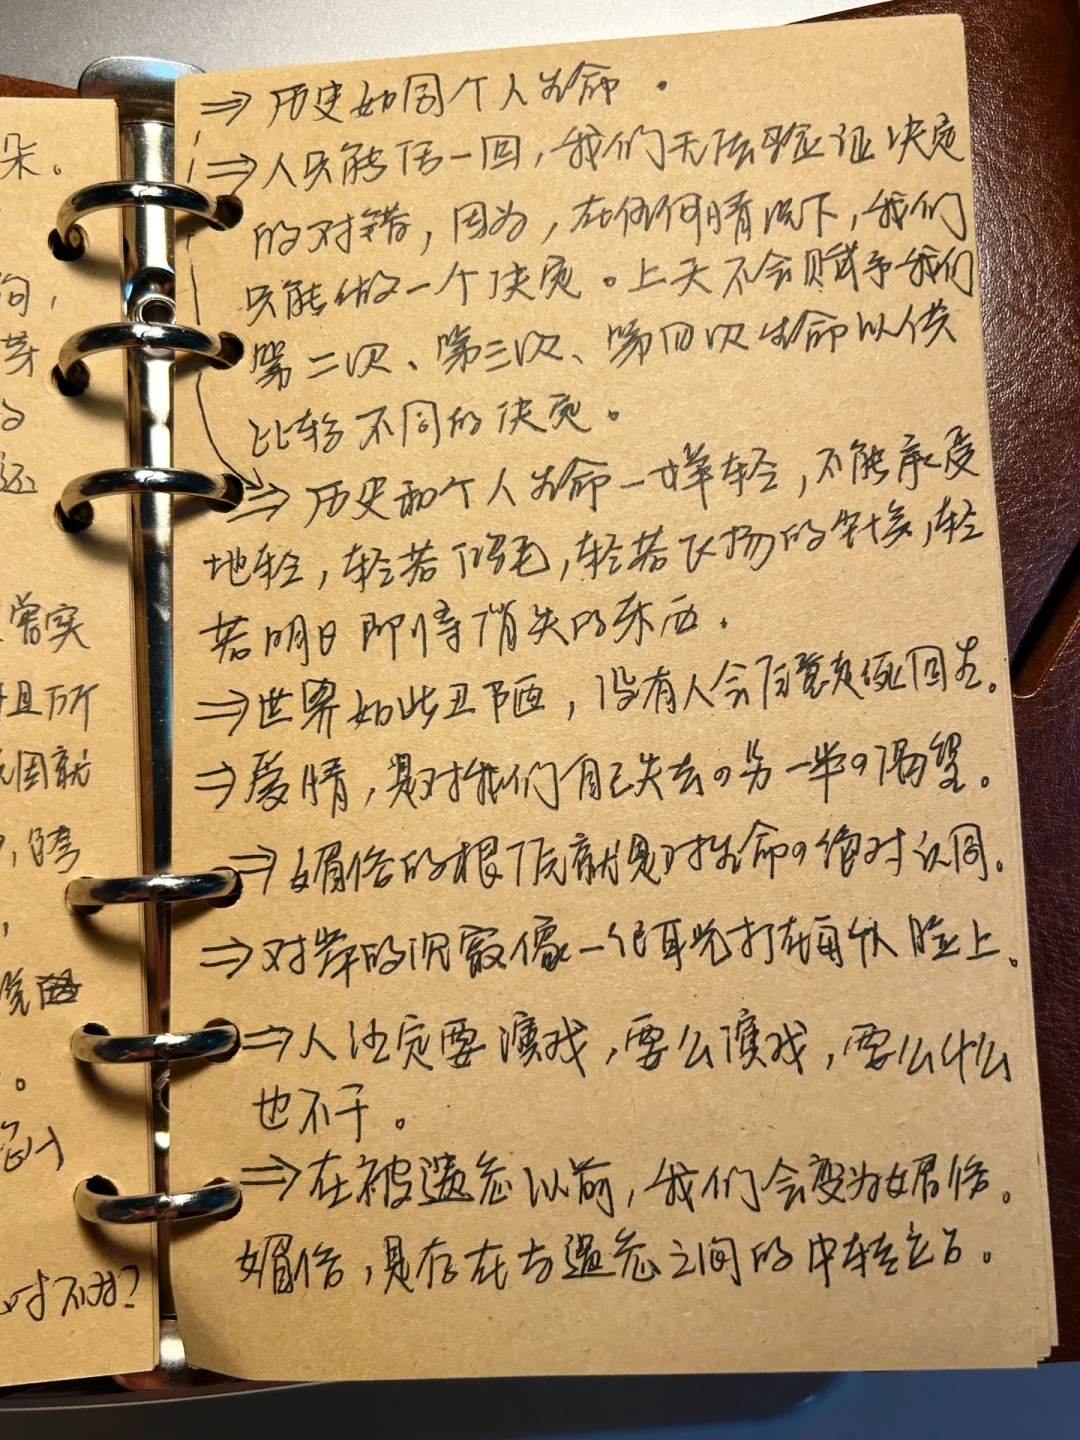 朵。
⇒ 历史如同个人生命。
⇒ 人只能活一回,我们无法验证决定
的对错,因为,在任何情况下,我们
只能做一个决定。上天不会赋予我们
第二次、第三次、第四次生命以供
比较不同的决定。
⇒ 历史和个人生命一样轻,不能承受
地轻,轻若鸿毛,轻若飞扬的尘埃,轻
若明日即将消失的东西。
⇒ 世界如此丑陋,没有人会愿意死回生。
⇒ 爱情,是对我们自己失去の另一半の渴望。
⇒ 媚俗的根源就是对生命の绝对认同。
⇒ 对岸的沉寂像一记耳光打在每个人脸上。
⇒ 人注定要演戏,要么演戏,要么什么
也不干。
⇒ 在被遗忘以前,我们会变为媚俗。
媚俗,是存在与遗忘之间的中转站。
还
曾实
且所
周就
,
。
对不对?